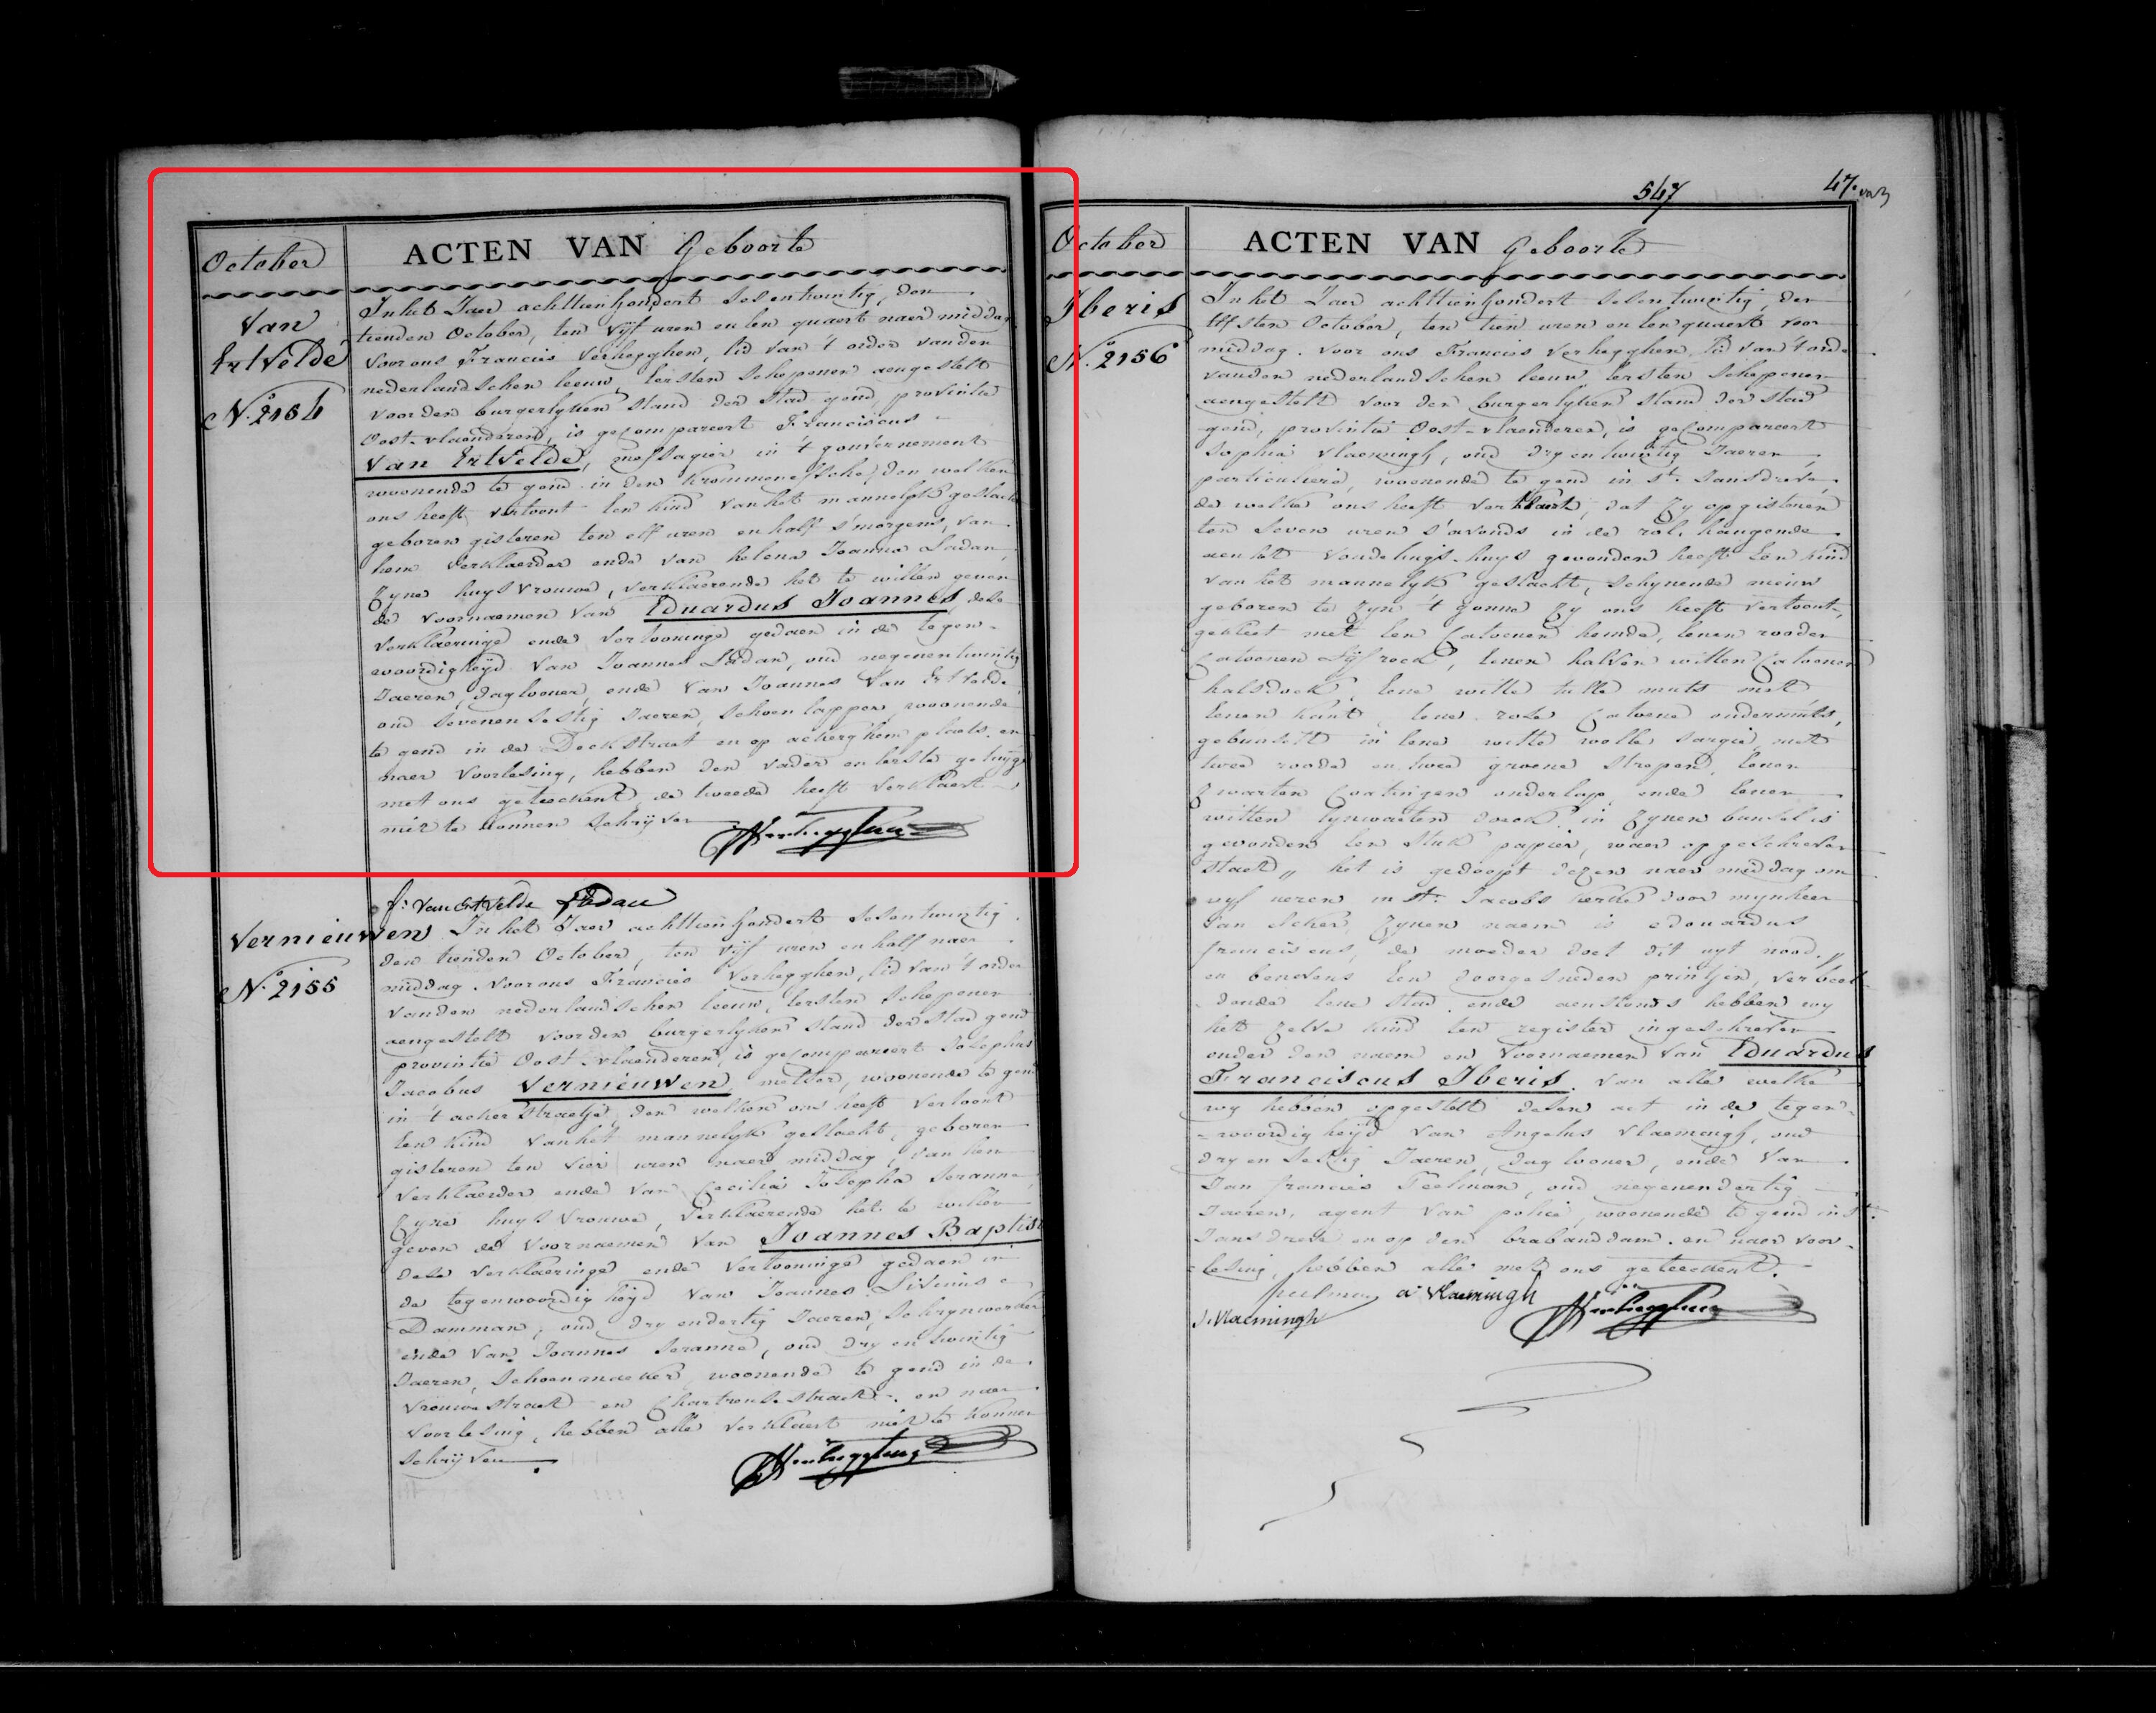 547
47. va3
October
ACTEN VAN Geboorte
Van
Ertvelde
N.º 2154
In het Jaer achttienhondert sesentwintig, den
tienden October, ten vijf uren en een quaert naer middag
voor ons Francies Verhegghen, lid van 't order van den
nederlandschen leeuw, eersten schepenen aengestelt
voor den burgerlyken stand der stad gend, provintie
Oost-vlaenderen, is gecompareert Franciscus
Van Ertvelde, messagier in 't gouvernement
woonende te gend in den Krommenessche, den welken
ons heeft vertoont een kind van het mannelyk geslacht
geboren gisteren ten elf uren en half s'morgens, van
hem verklaerder ende van helena Joanna Ladan,
zyne huysvrouwe, verklaerende het te willen geven
de voornaemen van Eduardus Joannes, dese
verklaeringe ende vertooninge gedaen in de tegen-
woordigheyd van Joannes Ladan, oud negenentwintig
Jaeren, daglooner, ende van Joannes Van Ertvelde,
oud sevenensestig Jaeren, schoenlapper, woonende
te gend in de Dockstraet en op ackerghem plaets. en
naer voorlesing, hebben den vader en eerste getuyge
met ons geteeckent, de tweede heeft verklaert
niet te konnen schryven
f: Van Ertvelde Ladan
Vernieuwen
N.º 2155
In het Jaer achttienhondert sesentwintig
den tienden October, ten vijf uren en half naer
middag. voor ons Francies Verhegghen, lid van 't order
van den nederlandschen leeuw, eersten schepenen
aengestelt voor den burgerlyken stand der stad gend
provintie Oost-vlaenderen, is gecompareert Josephus
Jacobus Vernieuwen, metser, woonende te gend
in 't acker straetje, den welken ons heeft vertoont
een kind van het mannelyk geslacht, geboren
gisteren ten vier uren naer middag, van hem
verklaerder ende van Cecilia Josepha Seranne,
zyne huysvrouwe, verklaerende het te willen
geven de voornaemen van Joannes Baptist
dese verklaeringe ende vertooninge gedaen in
de tegenwoordigheyd van Joannes Livinus
Damman, oud dry endertig Jaeren, schrynwerker
ende van Joannes Seranne, oud dry entwintig
Jaeren, schoenmaeker, woonende te gend in de
vrouwestraet en Chartreusestraet. en naer
voorlesing, hebben alle verklaert niet te konnen
schryven
October
ACTEN VAN Geboorte
Iberis
N.º 2156
In het Jaer achttienhondert sesentwintig, den
elfsten October, ten tien uren en een quaert voor
middag. voor ons Francies Verhegghen, lid van 't order
van den nederlandschen leeuw eersten schepenen
aengestelt voor den burgerlyken stand der stad
gend, provintie Oost-vlaenderen, is gecompareert
Sophia Vlaemingh, oud dry entwintig Jaeren,
particuliere, woonende te gend in st. Jansdreve,
de welke ons heeft verklaert, dat zy op gisteren
ten seven uren s'avonds in de rol, hangende
aen het vondelings-huys gevonden heeft een kind
van het mannelyk geslacht, schynende nieuw
geboren te zyn 't gonne zy ons heeft vertoont,
gekleet met een catoenen hemde, eenen rooden
catoenen lyfrock, eenen halven witten catoenen
halsdoek, eene witte tulle muts met
eenen kant, eene rose catoene ondermuts,
gebunselt in eene witte wolle sargie, met
twee roode en twee groene strepen, eenen
zwarten coatingen onderlap, ende eenen
witten lynwaeten doek. in zynen bunsel is
gevonden een stuk papier, waer op geschreven
staet „ het is gedoopt dezen naer middag om
vyf ueren in st. Jacobs kerke door mynheer
van Eeker, zynen naem is edouardus
franciscus, de moeder doet dit uyt nood „
en benevens een doorgesneden printjen, verbeel-
-dende eene stad. ende aenstonds hebben wy
het zelve kind ten register ingeschreven
onder den naem en voornaemen van Eduardus
Franciscus Iberis. van alle welke
wy hebben opgestelt desen act in de tegen-
-woordigheyd van Angelus Vlaemingh, oud
dry en sestig Jaeren, daglooner, ende van
Jan francies Teelman, oud negenendertig
Jaeren, agent van policie, woonende te gend in st.
Jansdreve en op den brabanddam. en naer voor-
-lesing, hebben alle met ons geteeckent.
a: Vlaemingh
S. Vlaemingh